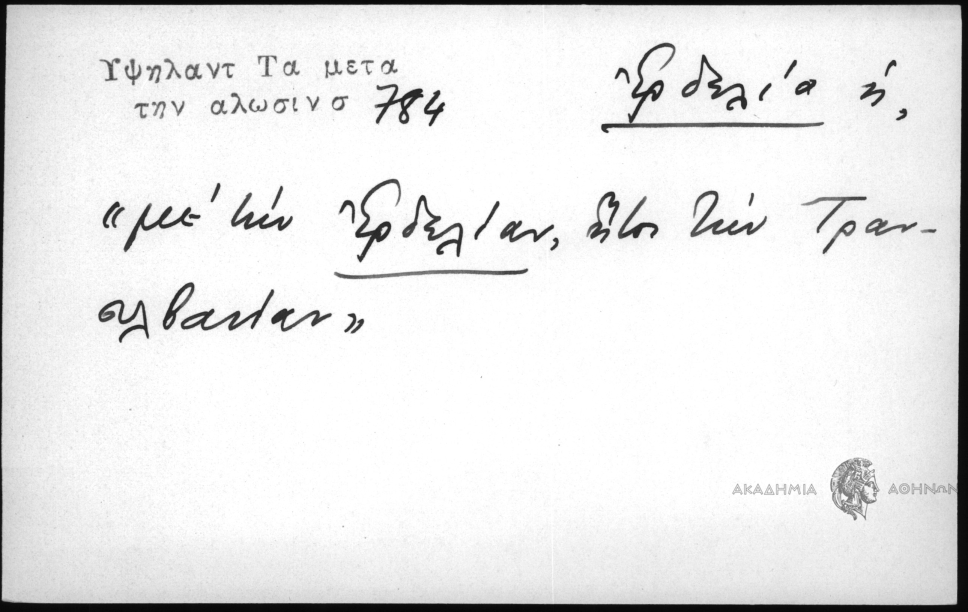 Υψηλαντ Τα μετα
την αλωσιν σ 784
Ἐρδελία ἡ,
«μὲ τὴν Ἐρδελίαν, ἤτοι τὴν Τραν-
συλβανίαν»
ΑΚΑΔΗΜΙΑ ΑΘΗΝΩΝ